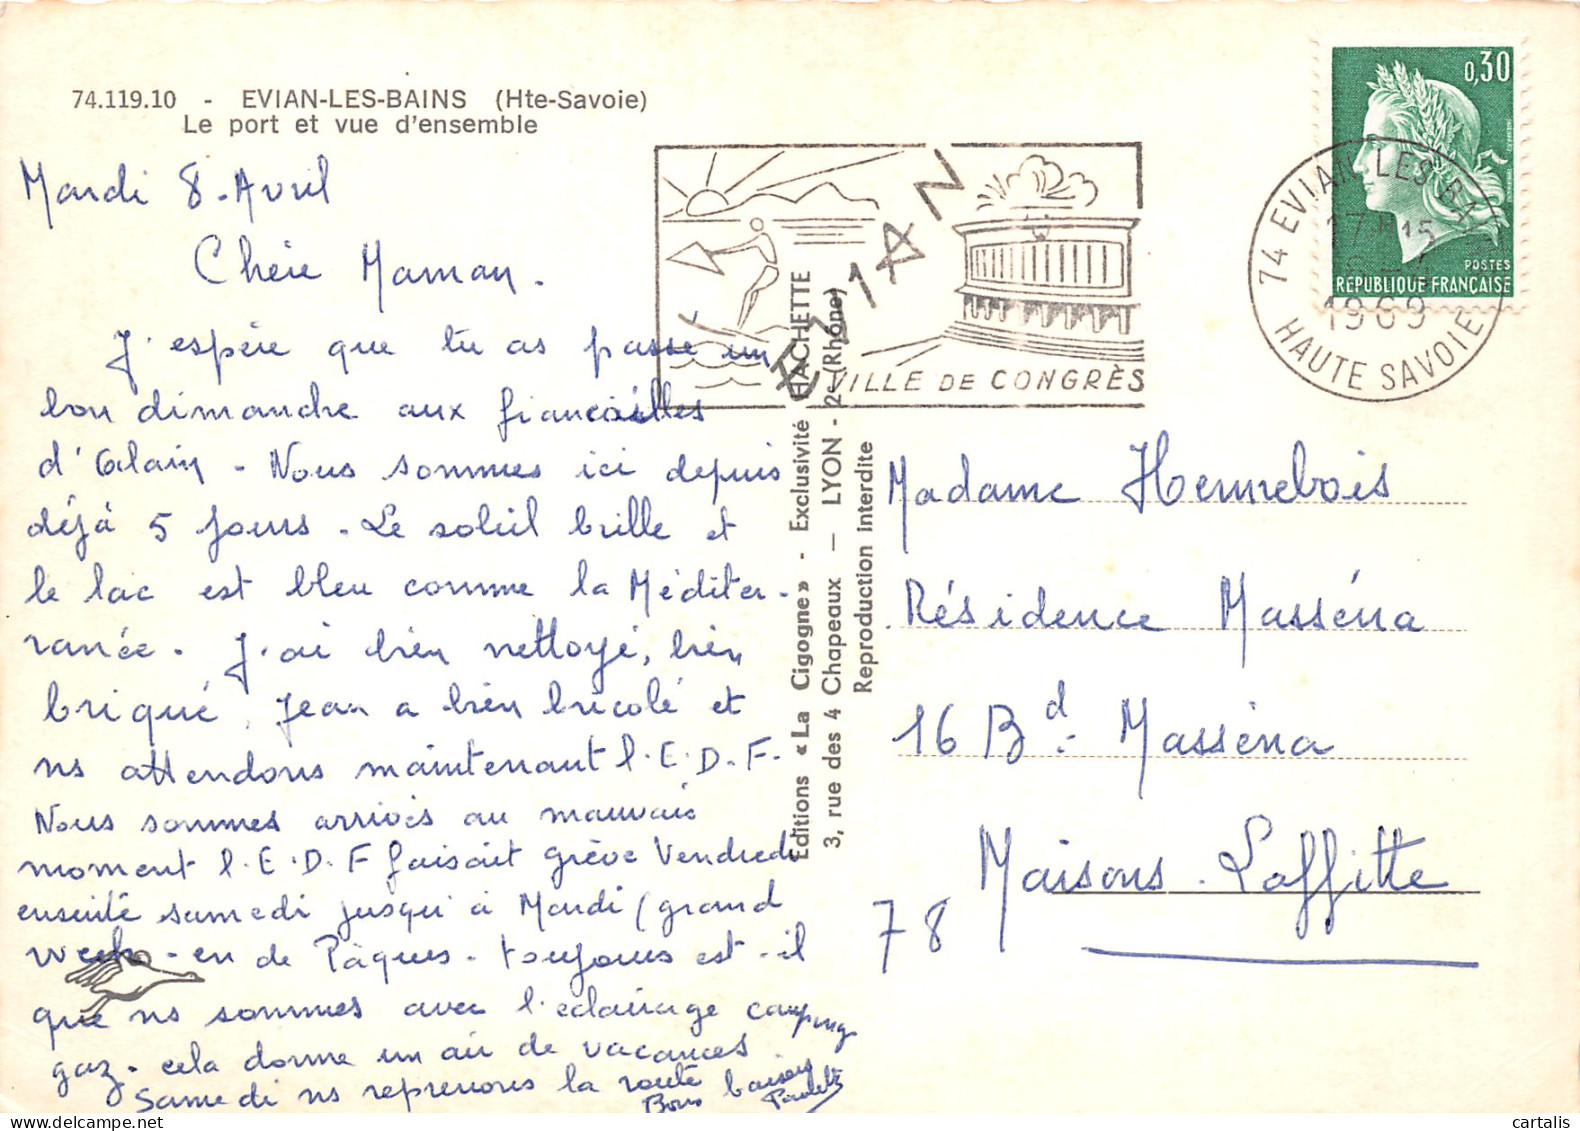 74.119.10 - EVIAN-LES-BAINS (Hte-Savoie)
Le port et vue d'ensemble
Mardi 8. Avril
Chère Maman.
J'espère que tu as passé un
bon dimanche aux fiancailles
d'Alain - Nous sommes ici depuis
déjà 5 jours. Le soleil brille et
le lac est bleu comme la Méditer-
ranée. J'ai bien nettoyé, bien
briqué, Jean a bien bricolé et
ns attendons maintenant l.E.D.F.
Nous sommes arrivés au mauvais
moment l.E.D.F faisait grève Vendredi
ensuite samedi jusqu'à Mardi (grand
week-en de Pâques. toujours est-il
que ns sommes avec l'eclairage camping
gaz. cela donne un air de vacances
Samedi ns reprenons la route
Bons baisers
Paulette
EVIAN
VILLE DE CONGRÈS
0,30
POSTES
RÉPUBLIQUE FRANÇAISE
74 EVIAN LES BAINS
17H15
8-4
1969
HAUTE SAVOIE
Editions « La Cigogne » - Exclusivité HACHETTE
3, rue des 4 Chapeaux — LYON - 2e (Rhône)
Reproduction interdite
Madame Hennebois
Résidence Masséna
16 Bd. Masséna
Maisons-Laffitte
78
cartalis